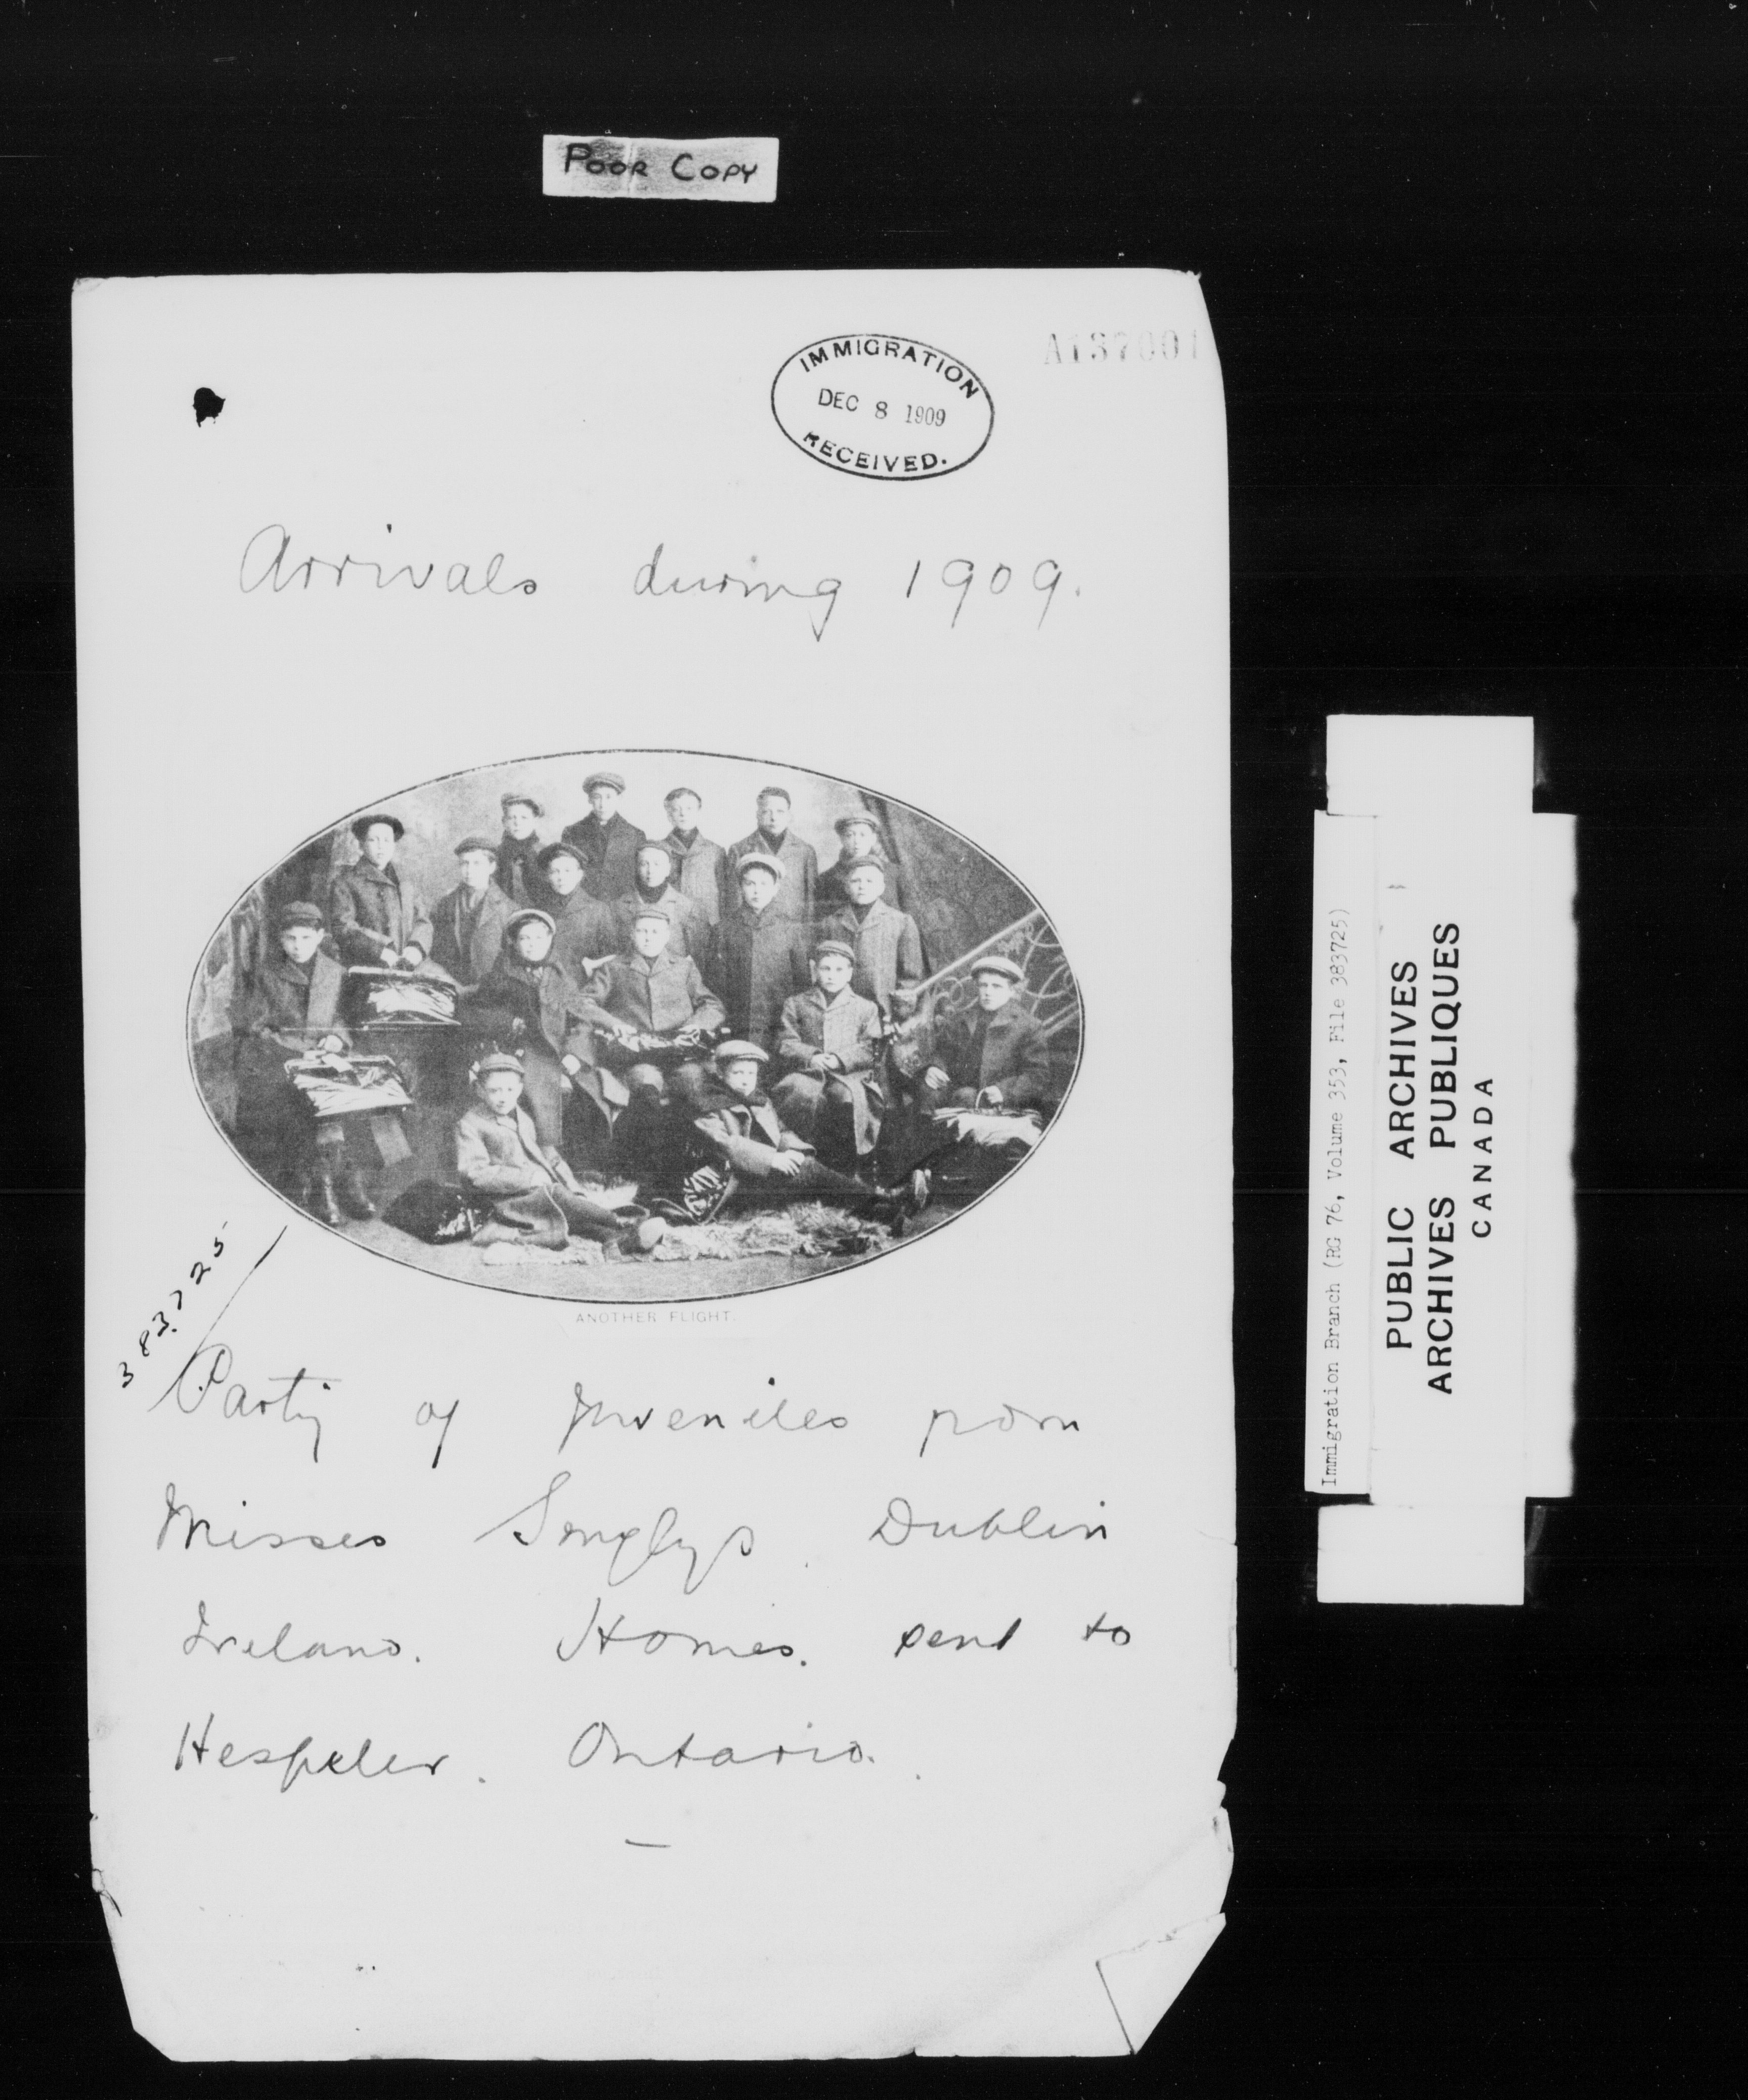 POOR COPY
A137001
IMMIGRATION
DEC 8 1909
RECEIVED.
Arrivals during 1909.
ANOTHER FLIGHT.
383725
Party of Juveniles from
Misses Smylys. Dublin
Ireland. Homes. sent to
Hespeler. Ontario.
Immigration Branch (RG 76, Volume 353, File 383725)
PUBLIC ARCHIVES
ARCHIVES PUBLIQUES
CANADA